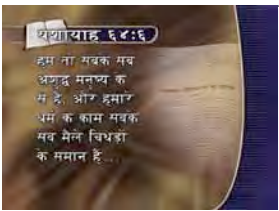 यशायाह ६४:६
हम तो सबके सब
अशुद्ध मनुष्य के
से हैं, और हमारे
धर्म के काम सबके
सब मैले चिथड़ों
के समान हैं ...